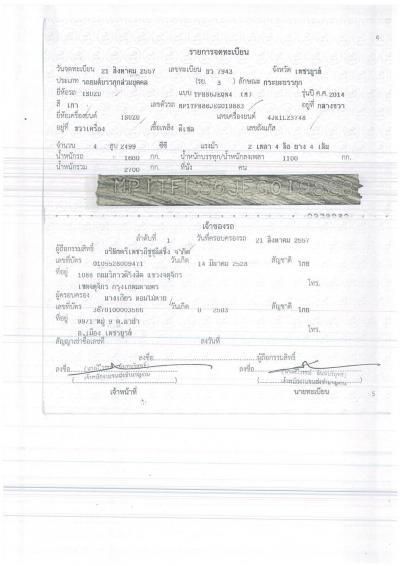 4
รายการจดทะเบียน
วันจดทะเบียน 21 สิงหาคม 2557 เลขทะเบียน บว 7943 จังหวัด เพชรบูรณ์
ประเภท รถยนต์บรรทุกส่วนบุคคล (รย. 3 ) ลักษณะ กระบะบรรทุก
ยี่ห้อรถ ISUZU แบบ รุ่นปี ค.ศ. 2014
สี เทา เลขตัวรถ อยู่ที่ กลางขวา
ยี่ห้อเครื่องยนต์ ISUZU เลขเครื่องยนต์
อยู่ที่ ขวาเครื่อง เชื้อเพลิง ดีเซล เลขถังแก๊ส
จำนวน 4 สูบ 2499 ซีซี แรงม้า 2 เพลา 4 ล้อ ยาง 4 เส้น
น้ำหนักรถ 1600 กก. น้ำหนักบรรทุก/น้ำหนักลงเพลา 1100 กก.
น้ำหนักรวม 2700 กก. ที่นั่ง คน
เจ้าของรถ
ลำดับที่ 1 วันที่ครอบครองรถ 21 สิงหาคม 2557
ผู้ถือกรรมสิทธิ์ บริษัทตรีเพชรอีซูซุลิสซิ่ง จำกัด
เลขที่บัตร 0105526009471 วันเกิด 14 มีนาคม 2528 สัญชาติ ไทย
ที่อยู่ 1088 ถนนวิภาวดีรังสิต แขวงจตุจักร
เขตจตุจักร กรุงเทพมหานคร โทร.
ผู้ครอบครอง
เลขที่บัตร 3670100003566 วันเกิด 0 2503 สัญชาติ ไทย
ที่อยู่ หมู่ 9
อ.เมือง เพชรบูรณ์ โทร.
สัญญาเช่าซื้อเลขที่ ลงวันที่
ลงชื่อ ผู้ถือกรรมสิทธิ์
ลงชื่อ ลงชื่อ
เจ้าหน้าที่ นายทะเบียน
5